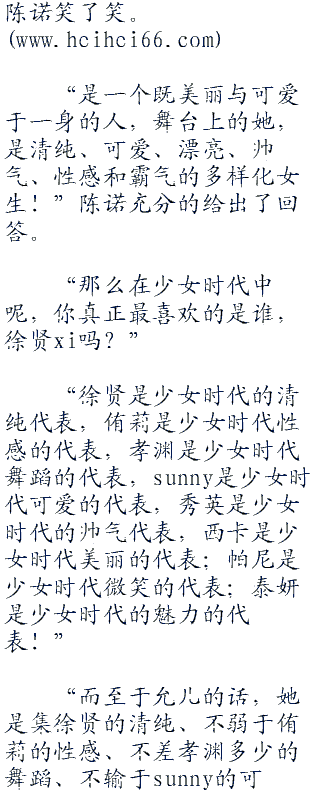 陈诺笑了笑。
(www.hcihci66.com)
“是一个既美丽与可爱
于一身的人，舞台上的她，
是清纯、可爱、漂亮、帅
气、性感和霸气的多样化女
生！”陈诺充分的给出了回
答。
“那么在少女时代中
呢，你真正最喜欢的是谁，
徐贤xi吗？”
“徐贤是少女时代的清
纯代表，侑莉是少女时代性
感的代表，孝渊是少女时代
舞蹈的代表，sunny是少女时
代可爱的代表，秀英是少女
时代的帅气代表，西卡是少
女时代美丽的代表；帕尼是
少女时代微笑的代表；泰妍
是少女时代的魅力的代
表！”
“而至于允儿的话，她
是集徐贤的清纯、不弱于侑
莉的性感、不差孝渊多少的
舞蹈、不输于sunny的可